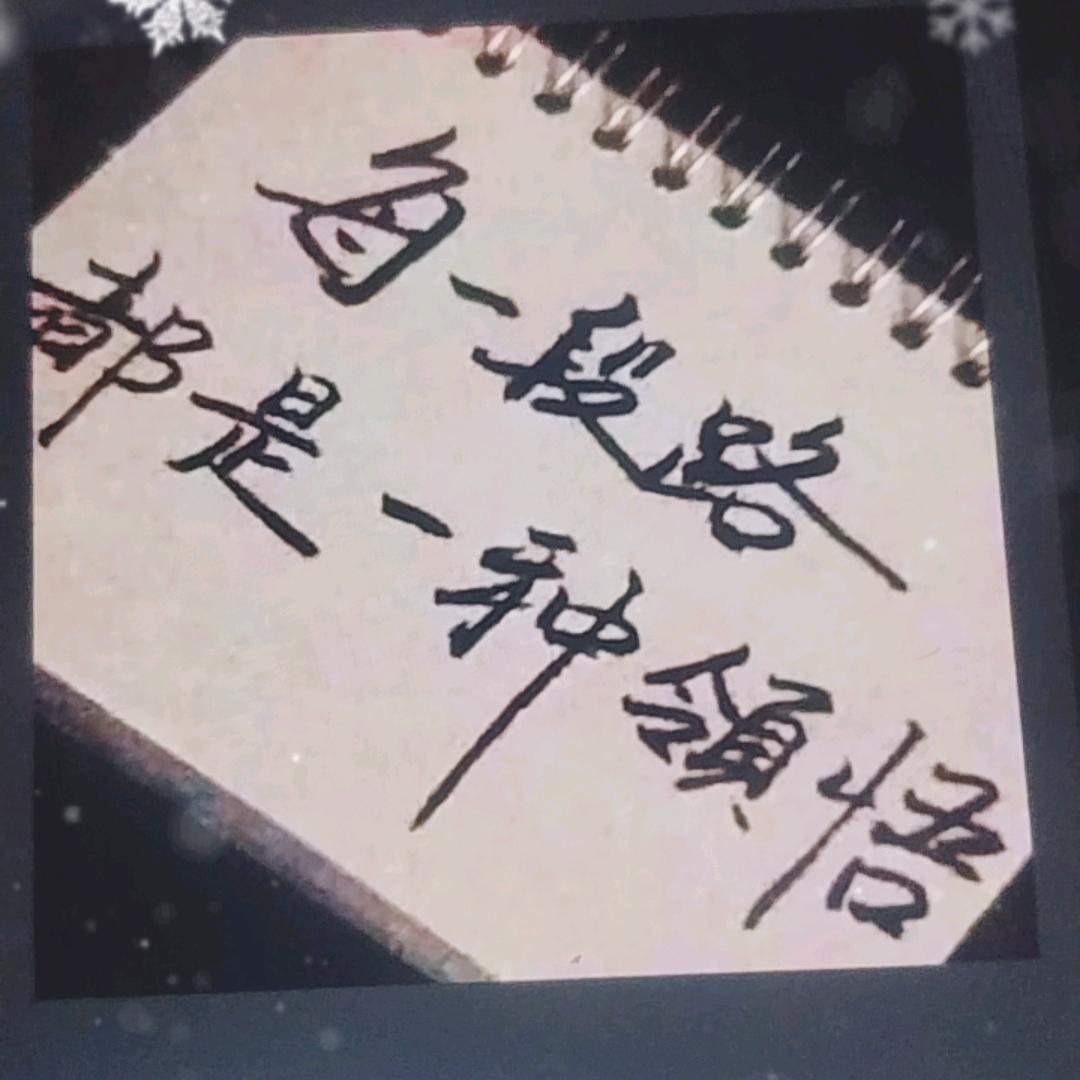 每一段路
都是一种領悟